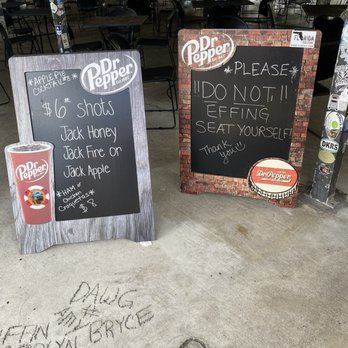 Dr Pepper
*APPLE PIE
COCKTAILS*
$6 SHOTS
Jack Honey
Jack Fire or
Jack Apple
*HAM or
Chicken
Croquettes*
$8
Dr Pepper
Dr Pepper
*PLEASE*
"DO NOT!!
EFFING
SEAT YOURSELF!
Thank you!!
Dr Pepper
DKRS
DAWG
BRYCE